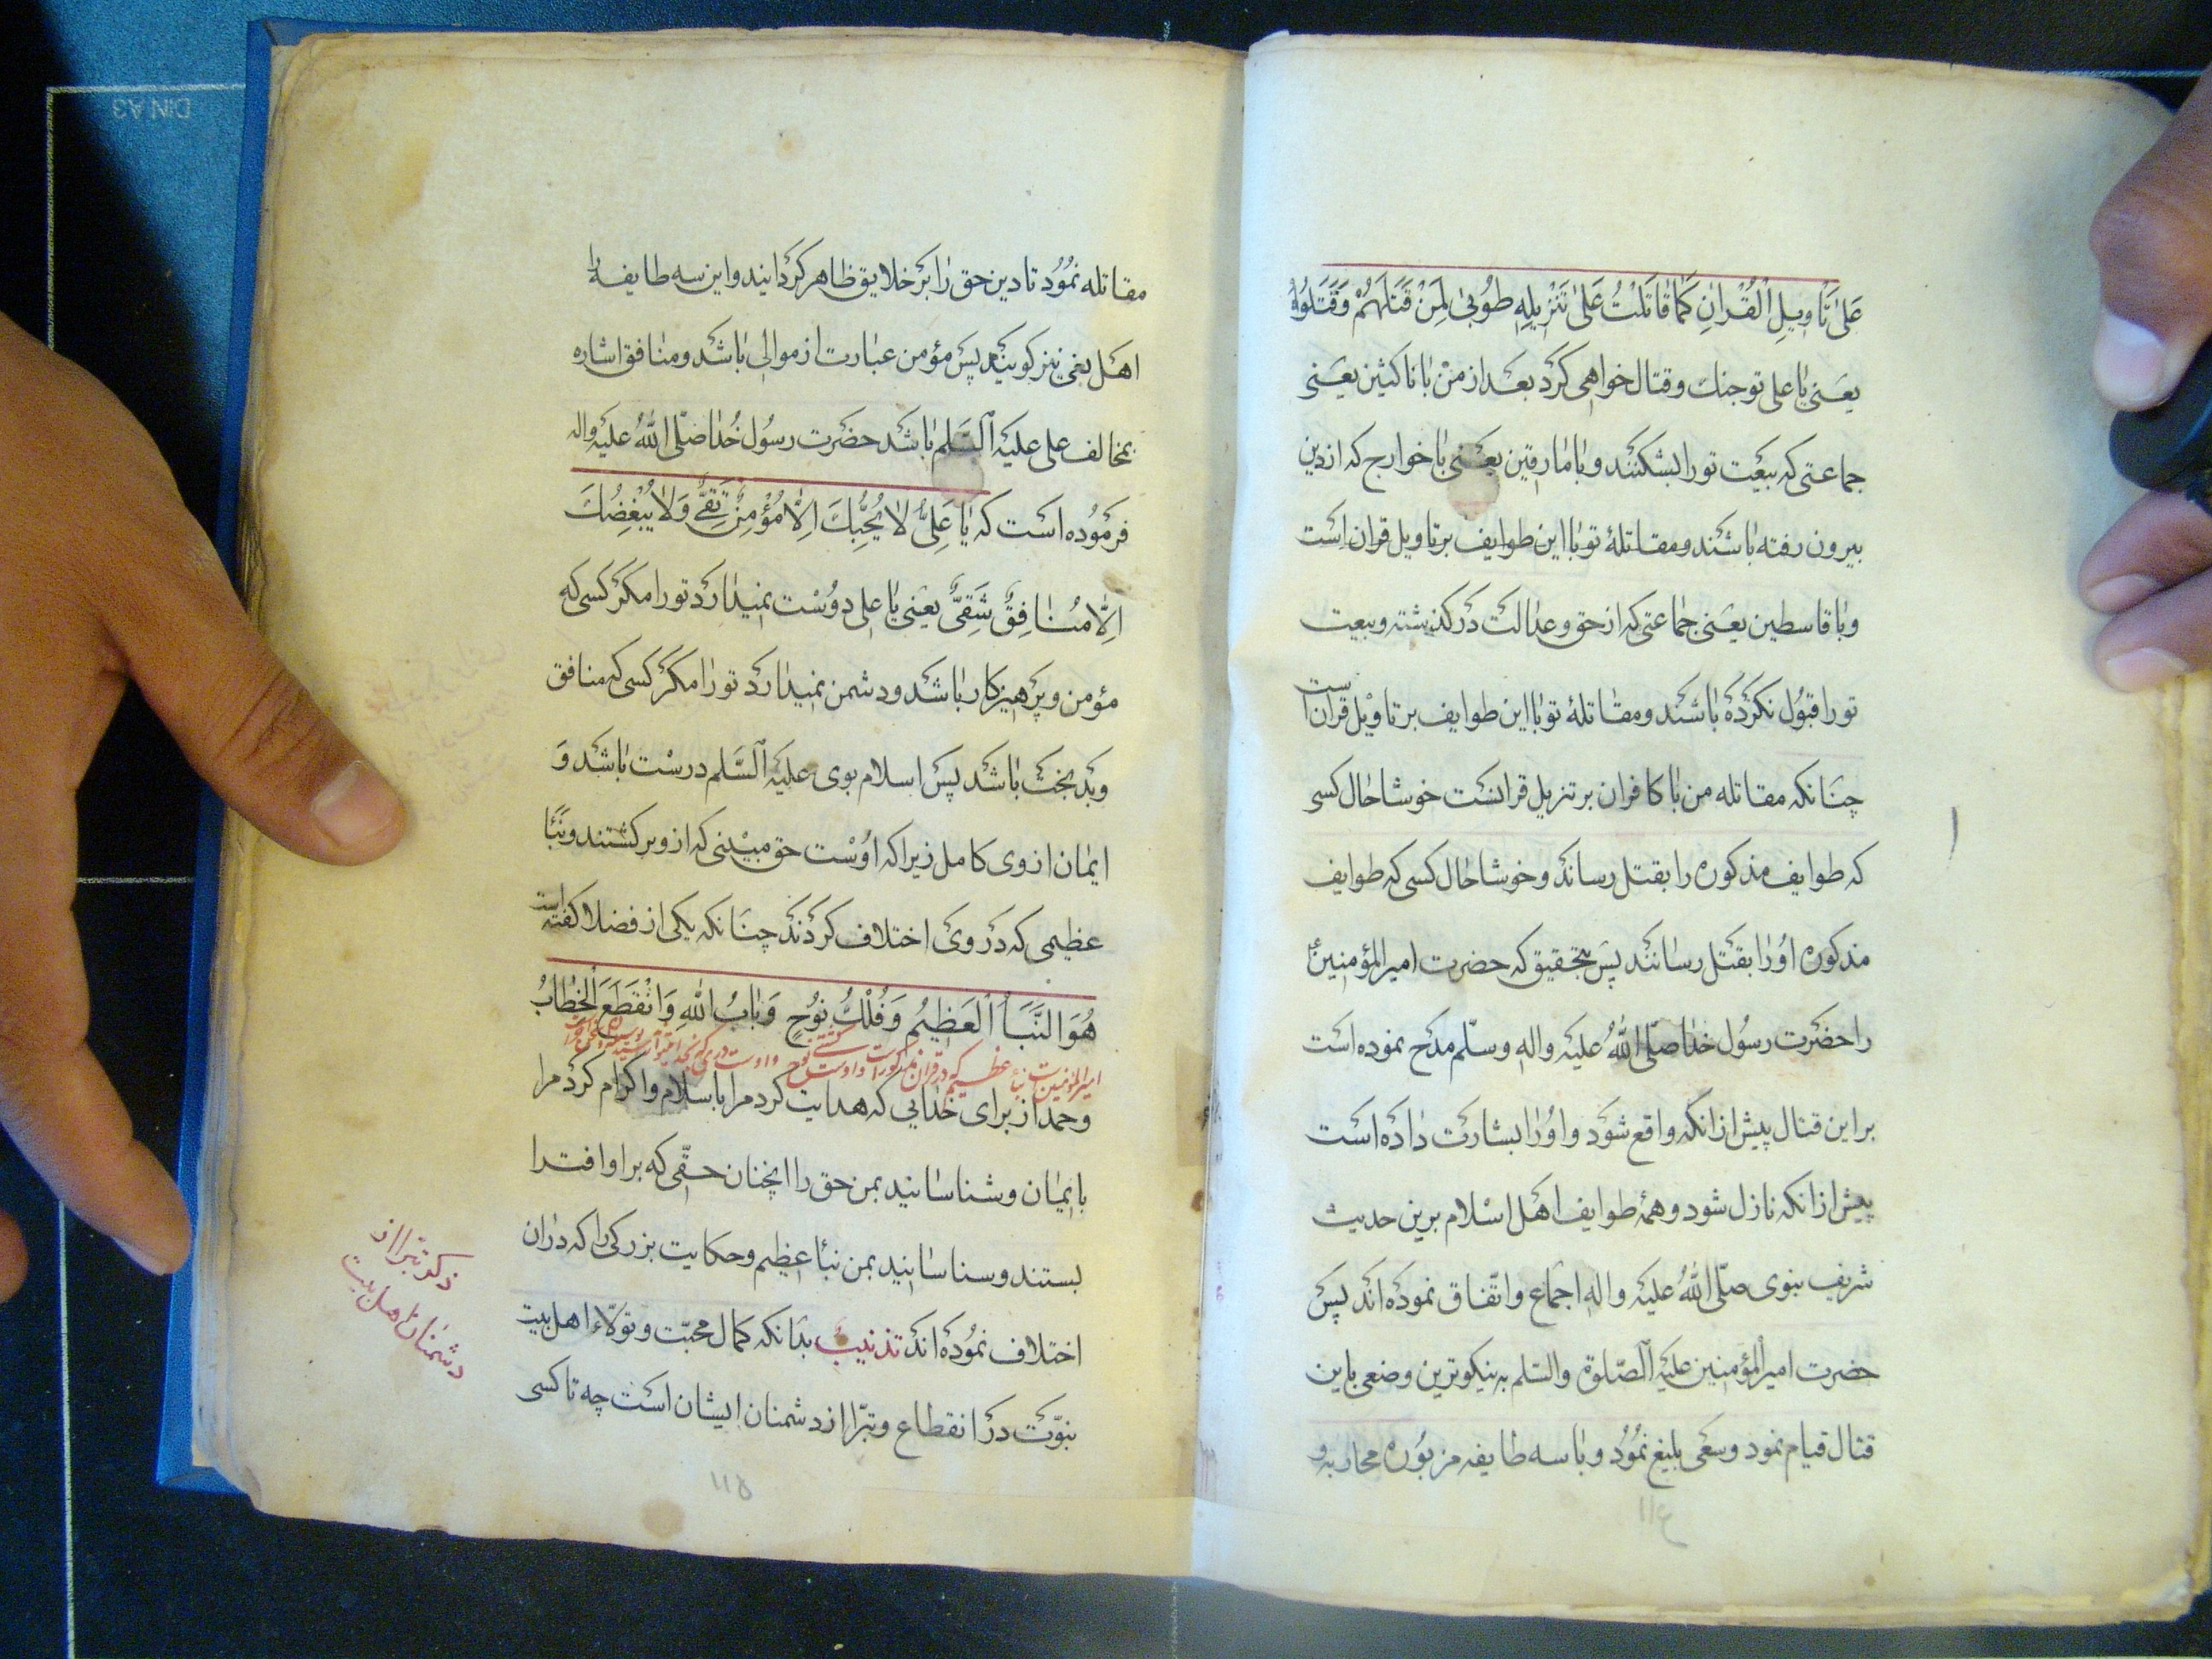 عَلىٰ تَأویلِ الْقُرْانِ کَمٰا قٰاتَلْتُ عَلىٰ تَنْزیلِهِ طُوبىٰ لِمَنْ قَتَلَهُمْ وَقَتَلُوهُ
یعنی یا علی توجنك وقتال خواهی کرد بعد از من با ناکثین یعنی
جماعتی که بیعت تو را بشکنند وبا مارقین یعنی با خوارج که از دین
بیرون رفته باشند ومقاتلهٔ تو با این طوایف بر تاویل قران است
وبا قاسطین یعنی جماعتی که از حق وعدالت در کذشته وبیعت
تو را قبول نکرده باشند ومقاتلهٔ تو با این طوایف بر تاویل قران است
چنانکه مقاتله من با کافران بر تنزیل قرانست خوشا حال کسی
که طوایف مذکوره را بقتل رساند وخوشا حال کسی که طوایف
مذکوره او را بقتل رسانند پس بتحقیق که حضرت امیر المؤمنین
را حضرت رسول خدا صلّی اللهُ علیه واله وسلّم مدح نموده است
بر این قتال پیش از انکه واقع شود واو را بشارت داده است
پیش از انکه نازل شود وهمهٔ طوایف اهل اسلام برین حدیث
شریف نبوی صلّی اللهُ علیه واله اجماع واتّفاق نموده اند پس
حضرت امیر المؤمنین علیه الصّلوة والسّلم به نیکوترین وضعی باین
قتال قیام نمود وسعی بلیغ نمود وبا سه طایفه مزبوره محاربه و
۱۱۴
مقاتله نمود تا دین حق را بر خلایق ظاهر کردانید واین سه طایفه را
اهل بغی نیز کویند پس مؤمن عبارت از موالی باشد ومنافق اشاره
بمخالف علی علیه السّلم باشد حضرت رسول خدا صلّی اللهُ علیه واله
فرموده است که یٰا عَلِیُّ لاٰ یُحِبُّكَ اِلّاٰ مُؤْمِنٌ تَقِیٌّ وَلاٰ یُبْغِضُكَ
اِلّاٰ مُنٰافِقٌ شَقِیٌّ یعنی یا علی دوست نمیدارد تو را مکر کسی که
مؤمن وپرهیزکار باشد ودشمن نمیدارد تو را مکر کسی که منافق
وبد بخت باشد پس اسلام بوی علیه السّلم درست باشد و
ایمان از وی کامل زیرا که اوست حق مبینی که از وبرکشتند ونبأ
عظیمی که در وی اختلاف کردند چنانکه یکی از فضلا کفته است
هُوَ النَّبَأُ الْعَظیمُ وَفُلْكُ نُوحٍ وَبٰابُ اللهِ وَانْقَطَعَ الْخِطٰابُ
امیر المؤمنین است نبأ عظیم که در قران مذکور است واوست کشتی نوح واوست دری که
وحمد از برای خدایی که هدایت کرد مرا باسلام واکرام کرد مرا
بایمان وشناسانید بمن حق را انچنان حقّی که بر او افترا
بستند وسناسانید بمن نبأ عظیم وحکایت بزرکی را که دران
اختلاف نموده اند تذنیب بدانکه کمال محبّت وتولّاء اهل بیت
نبوّت در انقطاع وتبرّا از دشمنان ایشان است چه تا کسی
ذکر تبرا از
دشمنان اهل بیت
۱۱۵